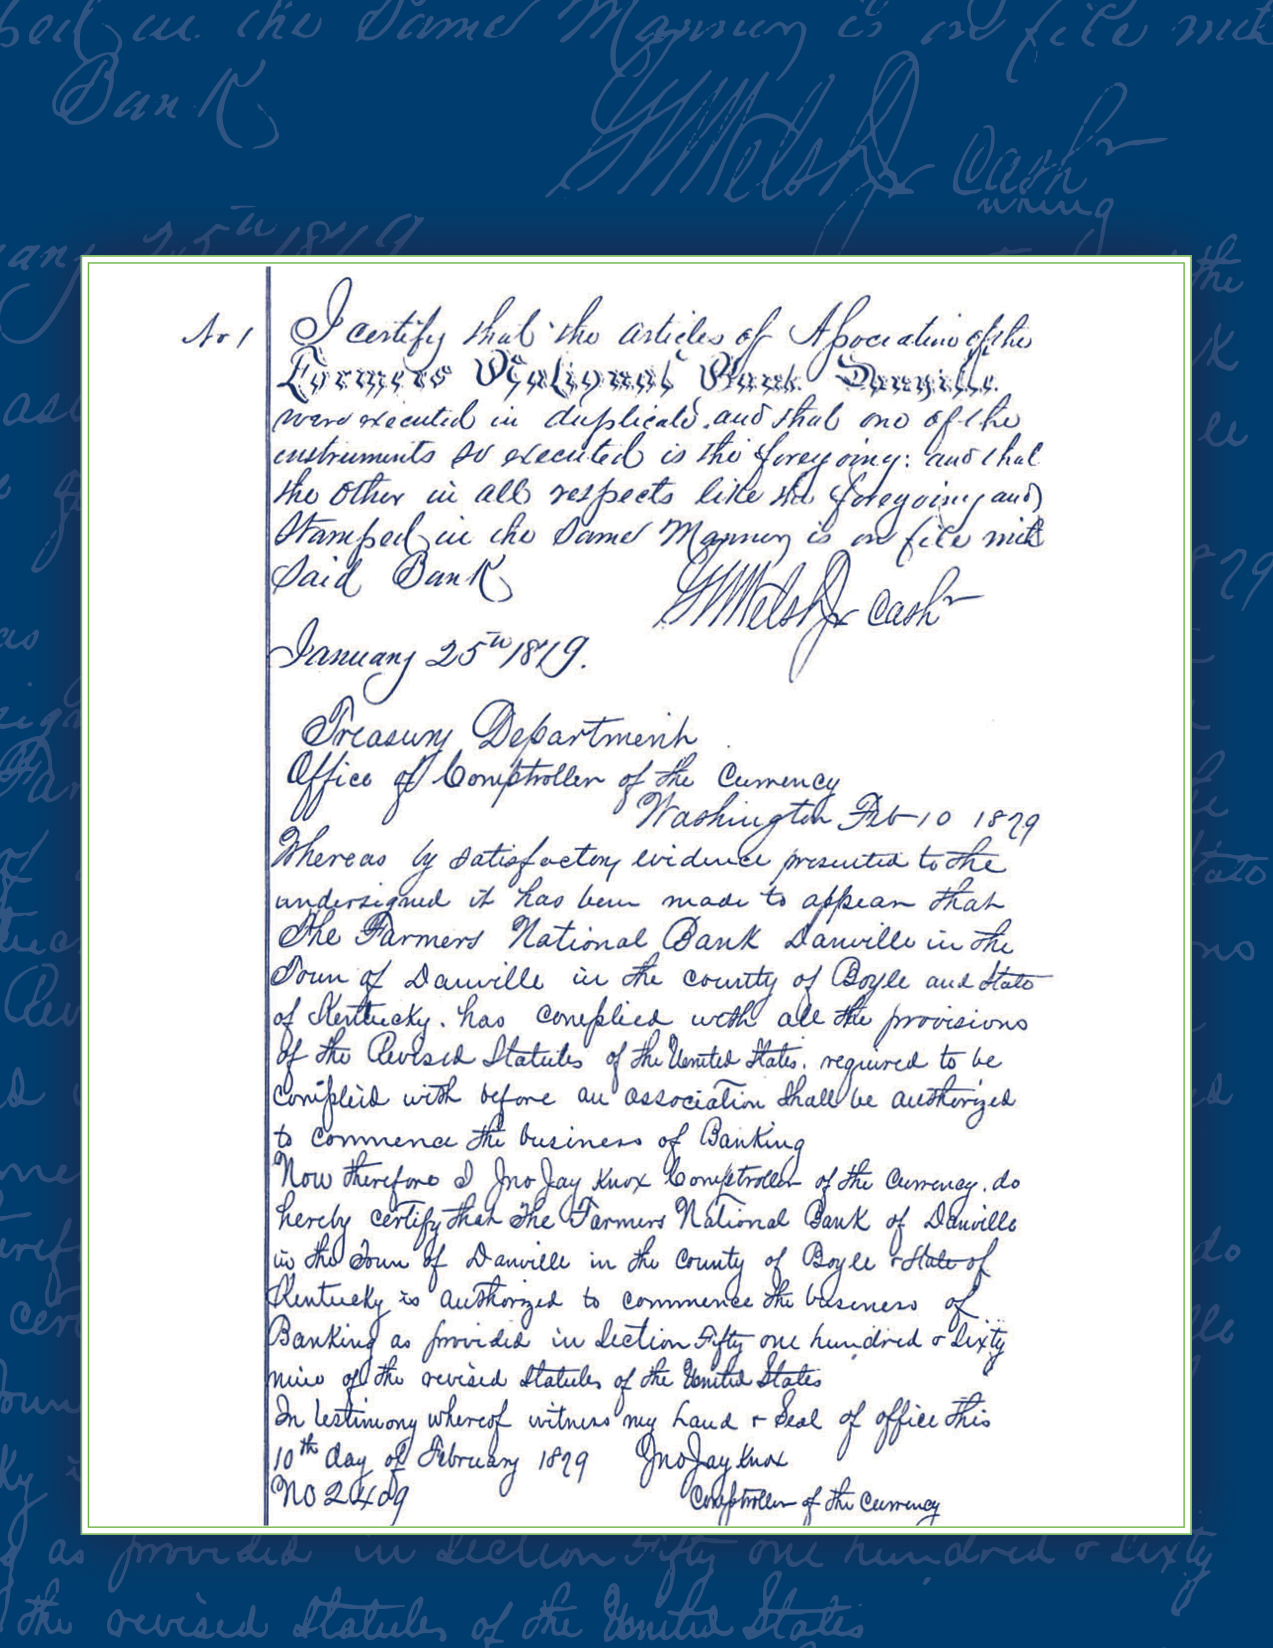 No 1
I certify that the articles of Association of the
Farmers National Bank Danville.
were executed in duplicate, and that one of the
instruments so executed is the foregoing: and that
the other in all respects like the foregoing and
Stamped in the Same Manner is on file with
Said Bank
G W Welsh Jr Cashr
January 25th 1879.
Treasury Department
Office of Comptroller of the Currency
Washington Feb 10 1879
Whereas by satisfactory evidence presented to the
undersigned it has been made to appear that
The Farmers National Bank Danville in the
Town of Danville in the county of Boyle and State
of Kentucky. has complied with all the provisions
of the Revised Statutes of the United States. required to be
complied with before an association shall be authorized
to commence the business of Banking
Now therefore I Jno Jay Knox Comptroller of the Currency. do
hereby certify that The Farmers National Bank of Danville
in the Town of Danville in the County of Boyle & State of
Kentucky is authorized to commence the business of
Banking as provided in Section Fifty one hundred & Sixty
nine of the revised Statutes of the United States
In testimony whereof witness my hand & Seal of office this
10th day of February 1879 Jno Jay Knox
No 2409 Comptroller of the Currency